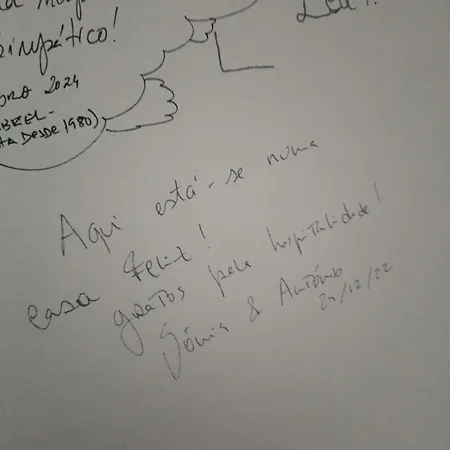 simpático!
2024
DESDE 1980)
Aqui está-se numa
casa Feliz!
gratos pela hospitalidade!
Sónia & António